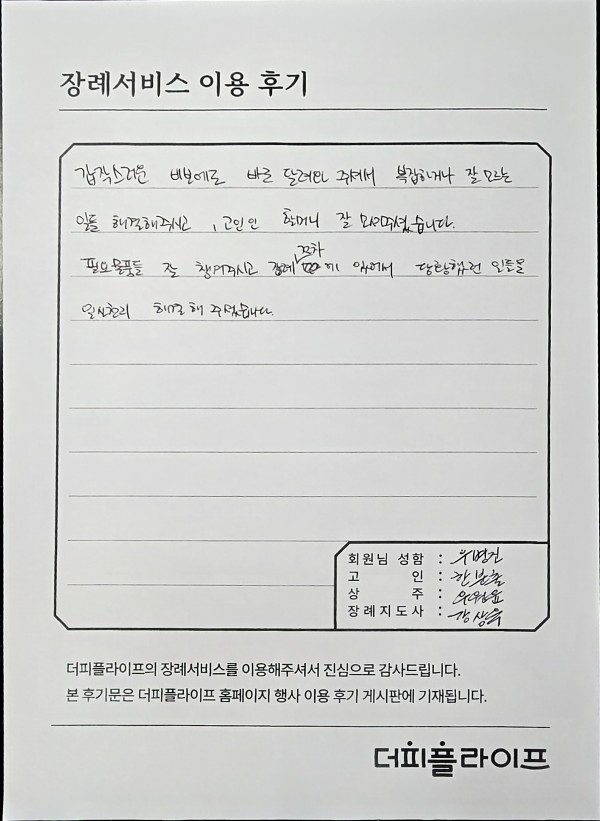 장례서비스 이용 후기
갑작스러운 비보에도 바로 달려와 주셔서 복잡하거나 잘 모르는
일들 해결해주시고, 고인인 할머니 잘 모셔주셨습니다.
필요물품들 잘 챙겨주시고 장례 절차에 있어서 당황했던 일들을
일사천리 해결해 주셨습니다.
회원님 성함 : 우병진
고 인 :
상 주 :
장례지도사 : 강상욱
더피플라이프의 장례서비스를 이용해주셔서 진심으로 감사드립니다.
본 후기문은 더피플라이프 홈페이지 행사 이용 후기 게시판에 기재됩니다.
더피플라이프